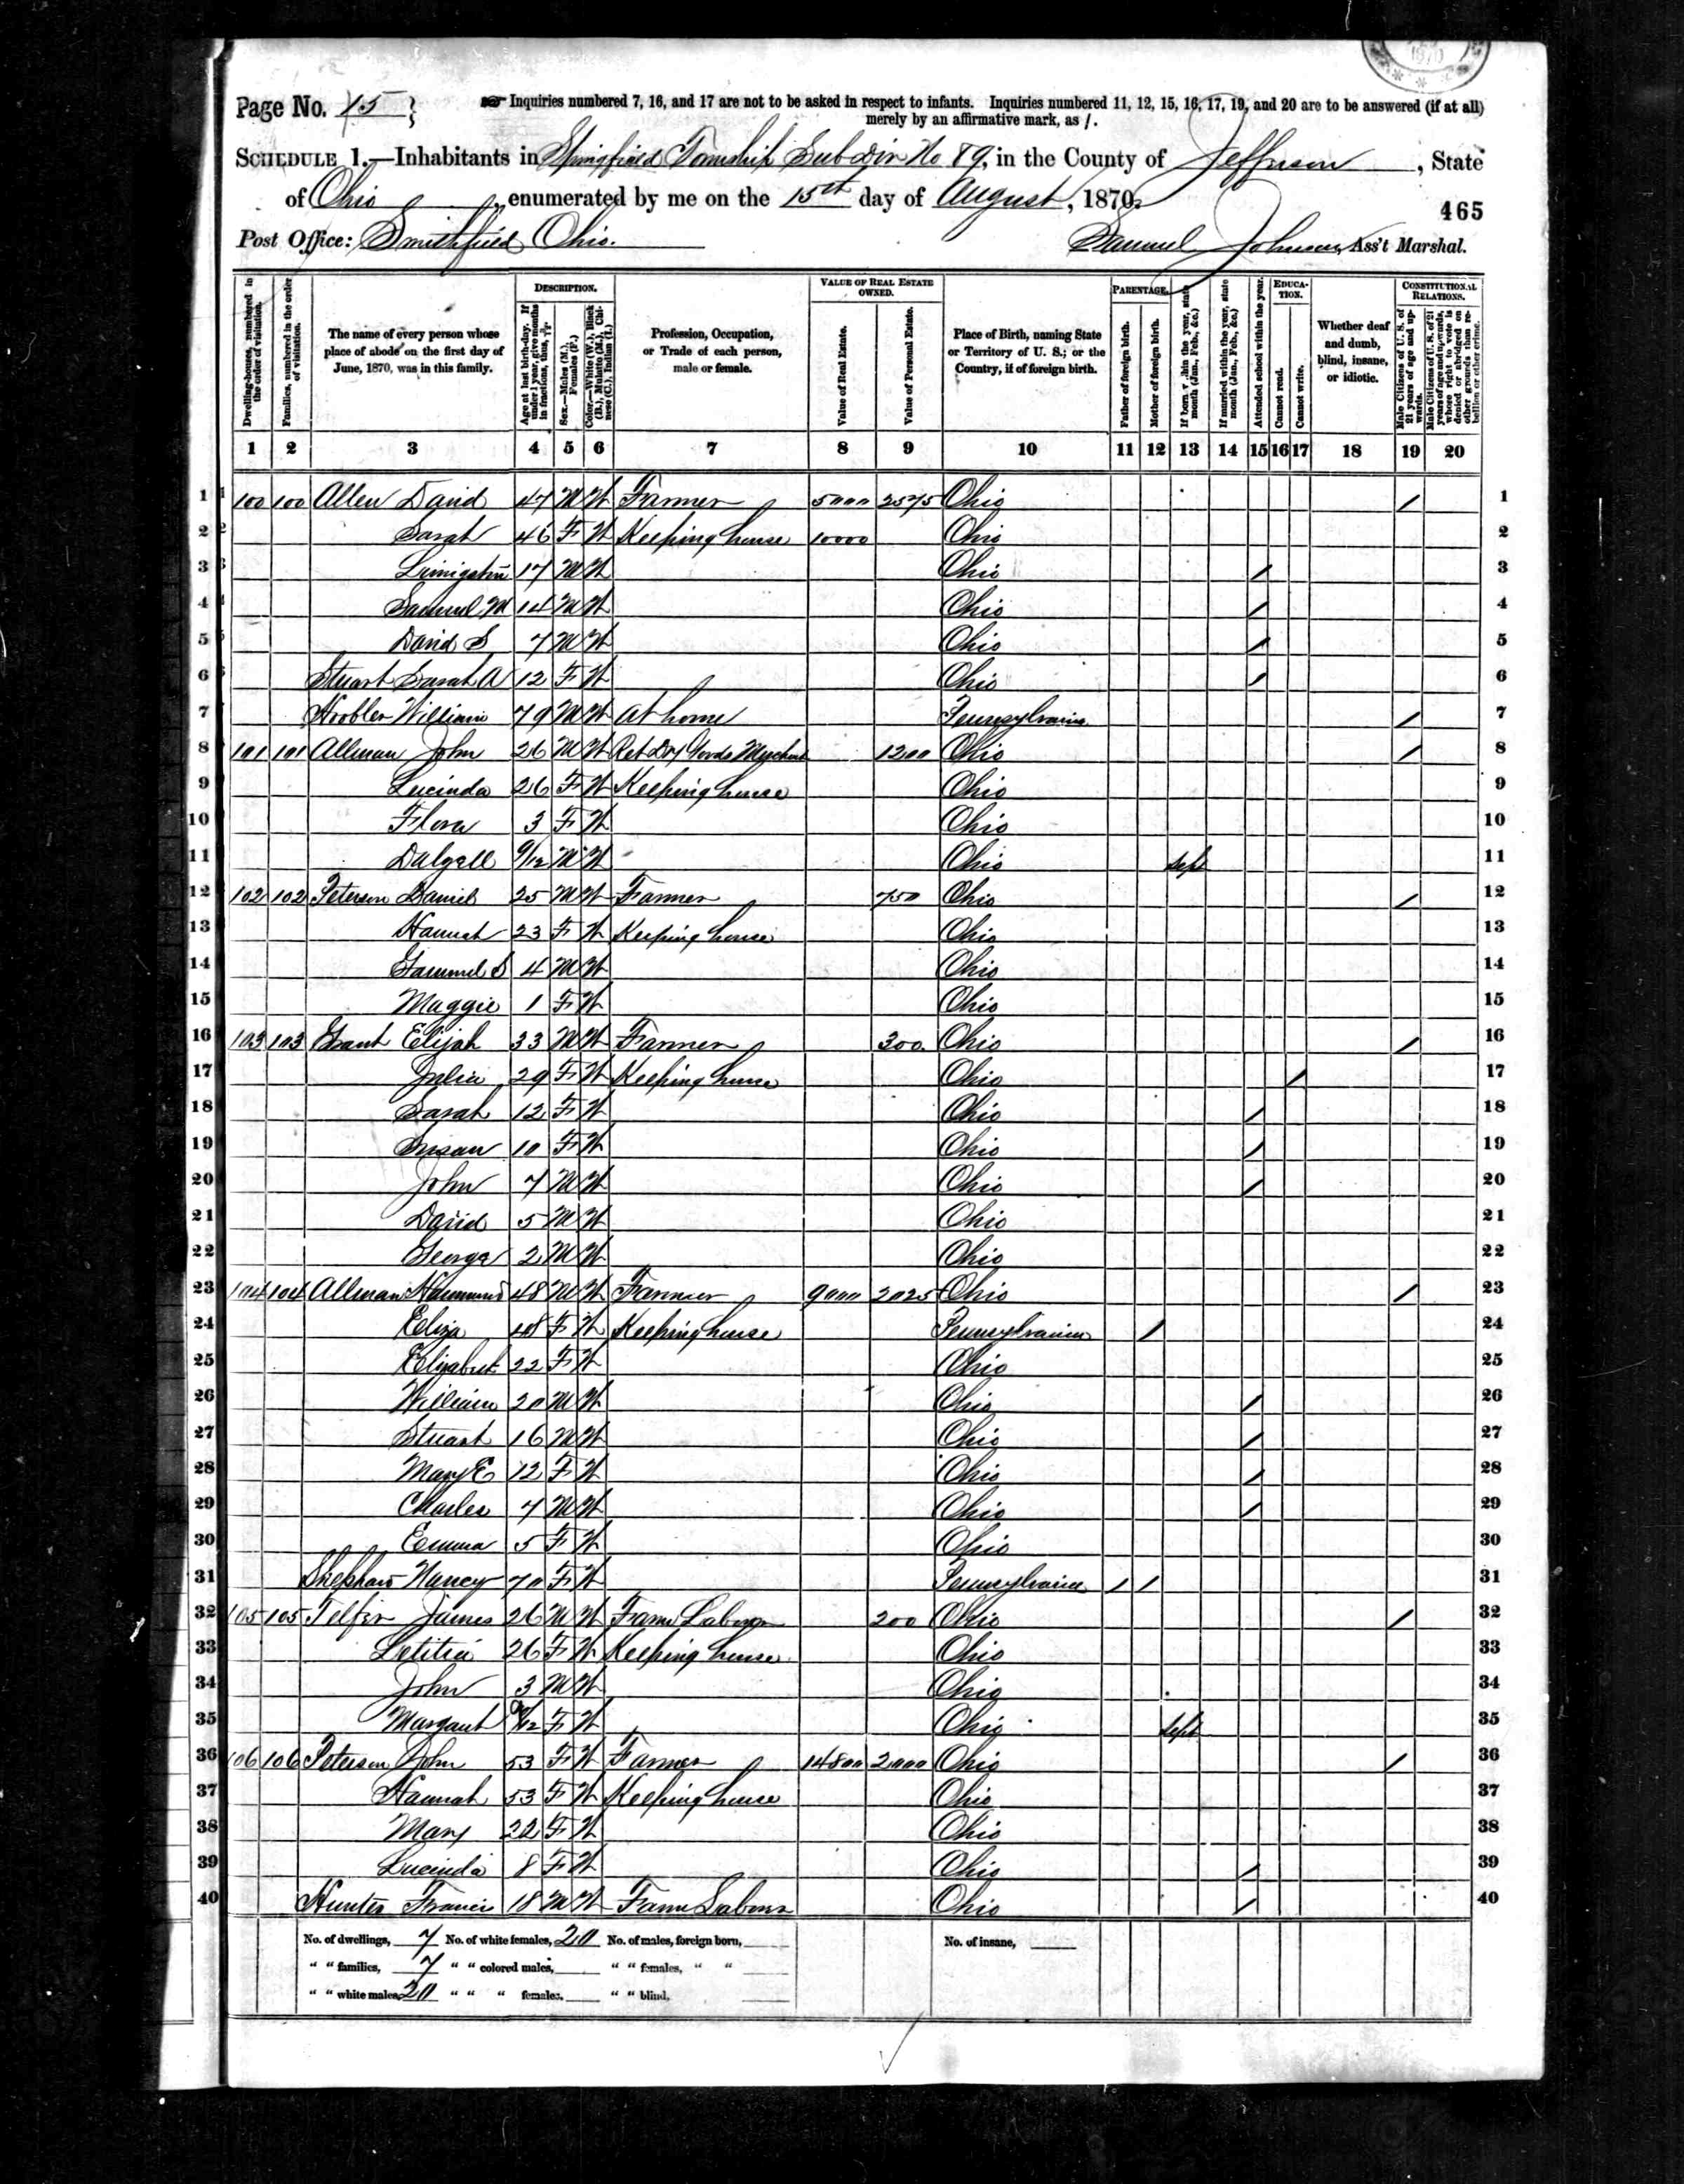 1870
Page No. 15
Inquiries numbered 7, 16, and 17 are not to be asked in respect to infants. Inquiries numbered 11, 12, 15, 16, 17, 19, and 20 are to be answered (if at all)
merely by an affirmative mark, as /.
Schedule 1.—Inhabitants in Springfield Township Subdiv No 89, in the County of Jefferson, State
of Ohio, enumerated by me on the 15th day of August, 1870.
465
Post Office: Smithfield Ohio. Samuel Johnson, Ass't Marshal.
Dwelling-houses, numbered in the order of visitation.
Families, numbered in the order of visitation.
The name of every person whose place of abode on the first day of June, 1870, was in this family.
Description.
Age at last birth-day. If under 1 year, give months in fractions, thus, 
Sex.—Males (M.), Females (F.)
Color.—White (W.), Black (B.), Mulatto (M.), Chinese (C.), Indian (I.)
Profession, Occupation, or Trade of each person, male or female.
Value of Real Estate Owned.
Value of Real Estate.
Value of Personal Estate.
Place of Birth, naming State or Territory of U. S.; or the Country, if of foreign birth.
Parentage.
Father of foreign birth.
Mother of foreign birth.
If born within the year, state month (Jan., Feb., &c.)
If married within the year, state month (Jan., Feb., &c.)
Attended school within the year.
Education.
Cannot read.
Cannot write.
Whether deaf and dumb, blind, insane, or idiotic.
Constitutional Relations.
Male Citizens of U. S. of 21 years of age and upwards.
Male Citizens of U. S. of 21 years of age and upwards, whose right to vote is denied or abridged on other grounds than rebellion or other crime.
1 2 3 4 5 6 7 8 9 10 11 12 13 14 15 16 17 18 19 20
1 100 100 Allen David 47 M W Farmer 5000 2575 Ohio / 1
2 Sarah 46 F W Keeping house 10000 Ohio 2
3 17 M W Ohio / 3
4 Samuel M 14 M W Ohio / 4
5 David S 7 M W Ohio / 5
6 Stuart Sarah A 12 F W Ohio / 6
7 William 79 M W At home Pennsylvania / 7
8 101 101 Allman John 26 M W Ret Dry Goods Merchant 1200 Ohio / 8
9 Lucinda 26 F W Keeping house Ohio 9
10 Flora 3 F W Ohio 10
11 Dalzell 9/12 M W Ohio Sept 11
12 102 102 Peterson Daniel 25 M W Farmer 750 Ohio / 12
13 Hannah 23 F W Keeping house Ohio 13
14 Sammuel S 4 M W Ohio 14
15 Maggie 1 F W Ohio 15
16 103 103 Grant Elijah 33 M W Farmer 300 Ohio / 16
17 Julia 29 F W Keeping house Ohio / 17
18 Sarah 12 F W Ohio / 18
19 Susan 10 F W Ohio / 19
20 John 7 M W Ohio / 20
21 David 5 M W Ohio 21
22 George 2 M W Ohio 22
23 104 104 Allman Hammond 48 M W Farmer 9000 2025 Ohio / 23
24 Eliza 48 F W Keeping house Pennsylvania / 24
25 Elizabeth 22 F W Ohio 25
26 William 20 M W Ohio / 26
27 Stuart 16 M W Ohio / 27
28 Mary E 12 F W Ohio / 28
29 Charles 7 M W Ohio / 29
30 Emma 5 F W Ohio 30
31 Shephard Nancy 70 F W Pennsylvania / / 31
32 105 105 Telfer James 26 M W Farm Laborer 200 Ohio / 32
33 Letitia 26 F W Keeping house Ohio 33
34 John 3 M W Ohio 34
35 Margaret F W Ohio Sept 35
36 106 106 Peterson John 53 F W Farmer 14800 2000 Ohio / 36
37 Hannah 53 F W Keeping house Ohio 37
38 Mary 22 F W Ohio 38
39 Lucinda 8 F W Ohio / 39
40 Hunter Francis 18 M W Farm Laborer Ohio / 40
No. of dwellings, 7 No. of white females, 20 No. of males, foreign born, No. of insane,
" " families, 7 " " colored males, " " females, " "
" " white males, 20 " " " females, " " blind,